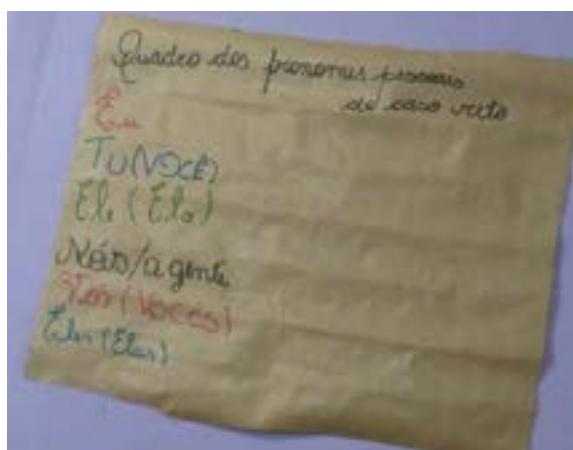 Quadro dos pronomes pessoais
do caso reto
Eu
TU (VOCÊ)
Ele (Ela)
Nós/a gente
Vós (Vocês)
Eles (Elas)